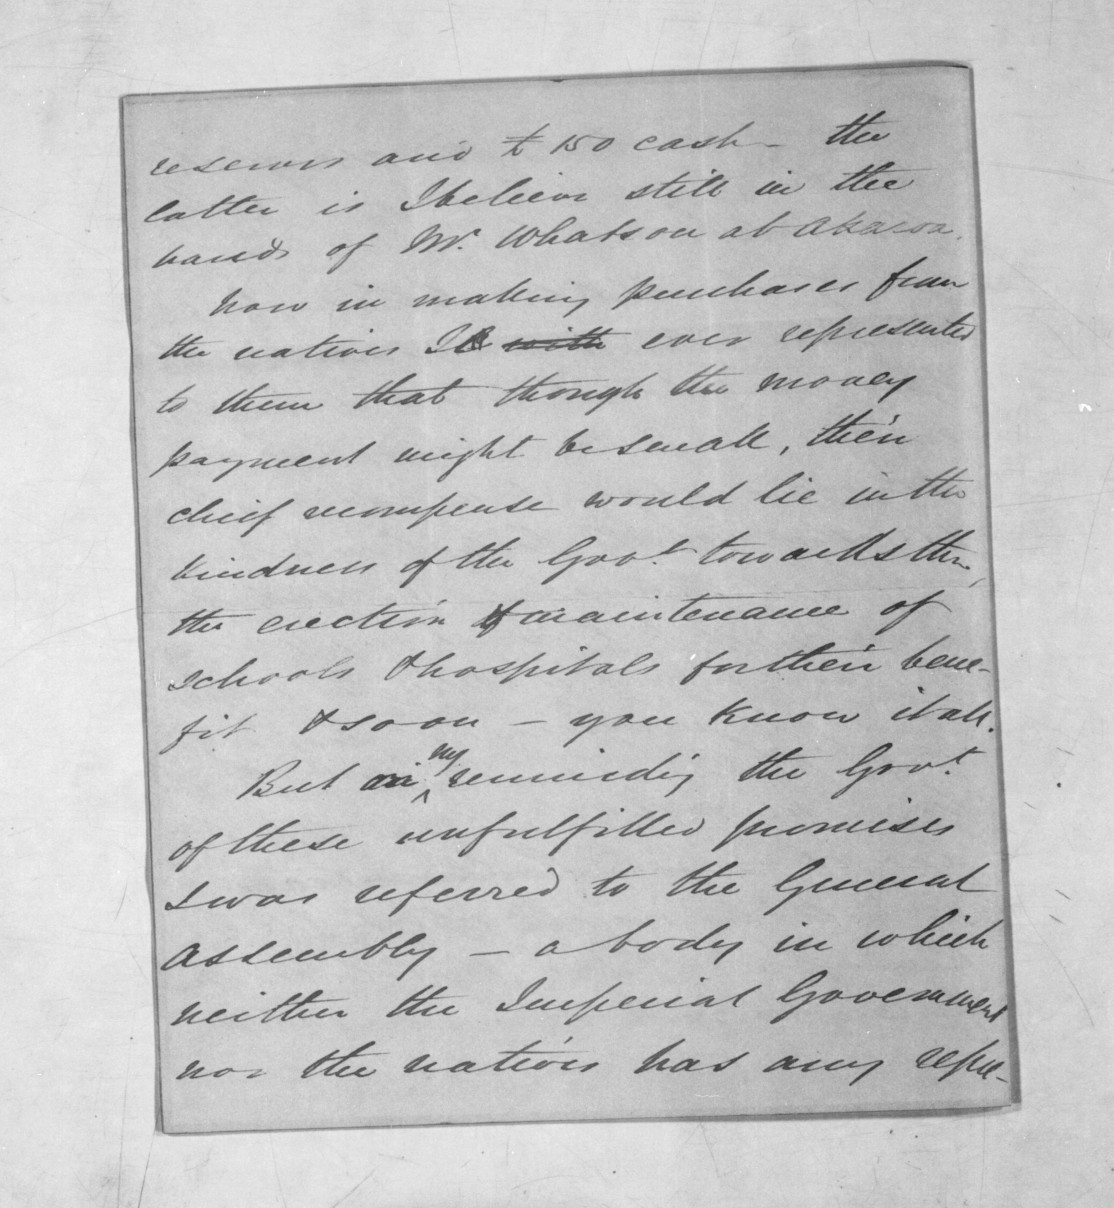 reserves and £ 150 cash - the
latter is I believe still in the
hands of Mr. Whatson at Akaroa.
Now in making purchases from
the natives I with ever represented
to them that though the money
payment might be small, their
chief recompense would lie in the
kindness of the Govt. towards them,
the erection & maintenance of
schools & hospitals for their bene-
fit & so on - you know it all.
But on my reminding the Govt.
of these unfulfilled promises
I was referred to the General
Assembly - a body in which
neither the Imperial Government
nor the natives has any repre-